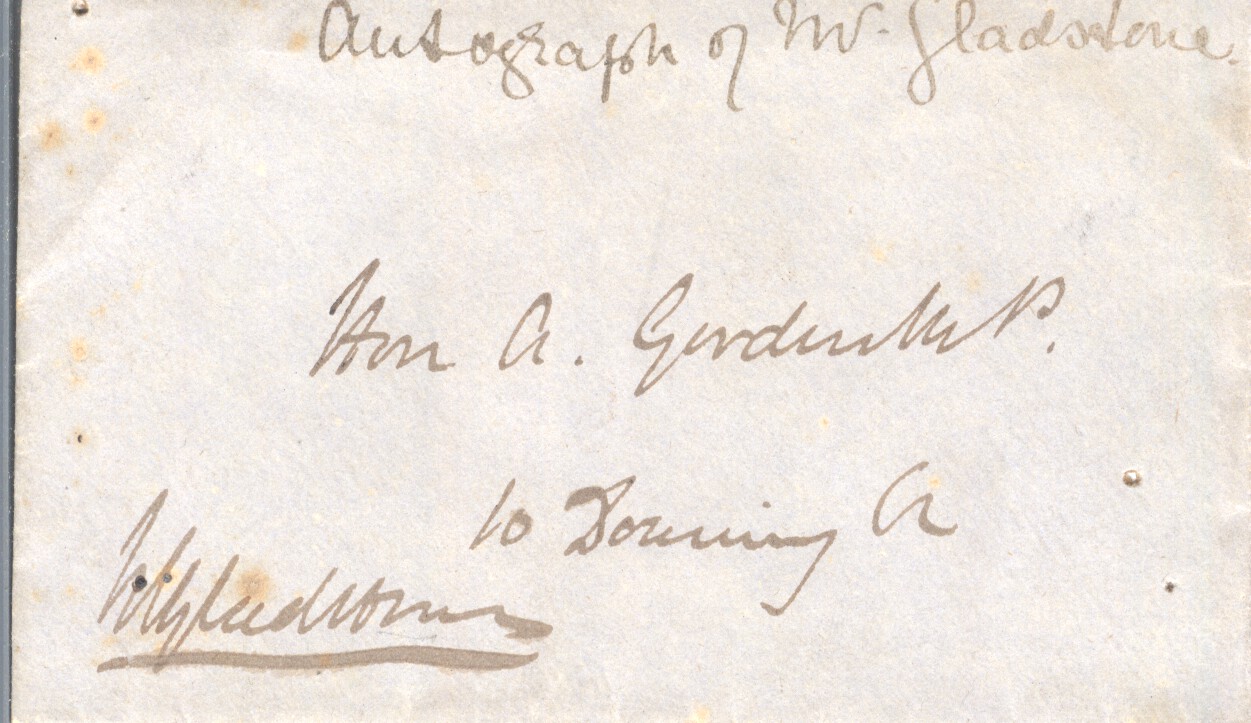 Autograph of Mr. Gladstone.
Hon A. Gordon M.P.
10 Downing St
WEGladstone